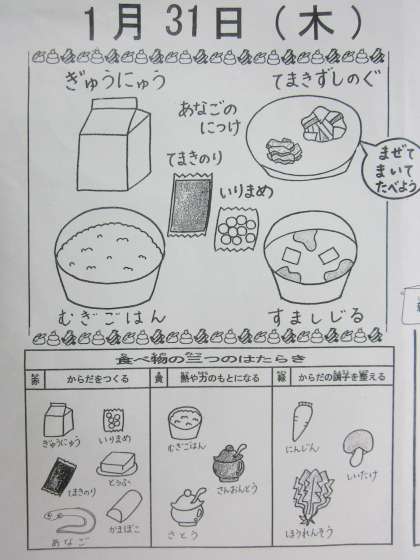 1月31日(木)
ぎゅうにゅう
てまきずしのぐ
あなごの
につけ
てまきのり
いりまめ
まぜて
まいて
たべよう
むぎごはん
すましじる
食べ物の三つのはたらき
赤 からだをつくる
黄 熱や力のもとになる
緑 からだの調子を整える
ぎゅうにゅう
いりまめ
てまきのり
とうふ
あなご
かまぼこ
むぎごはん
さんおんとう
さとう
にんじん
しいたけ
ほうれんそう